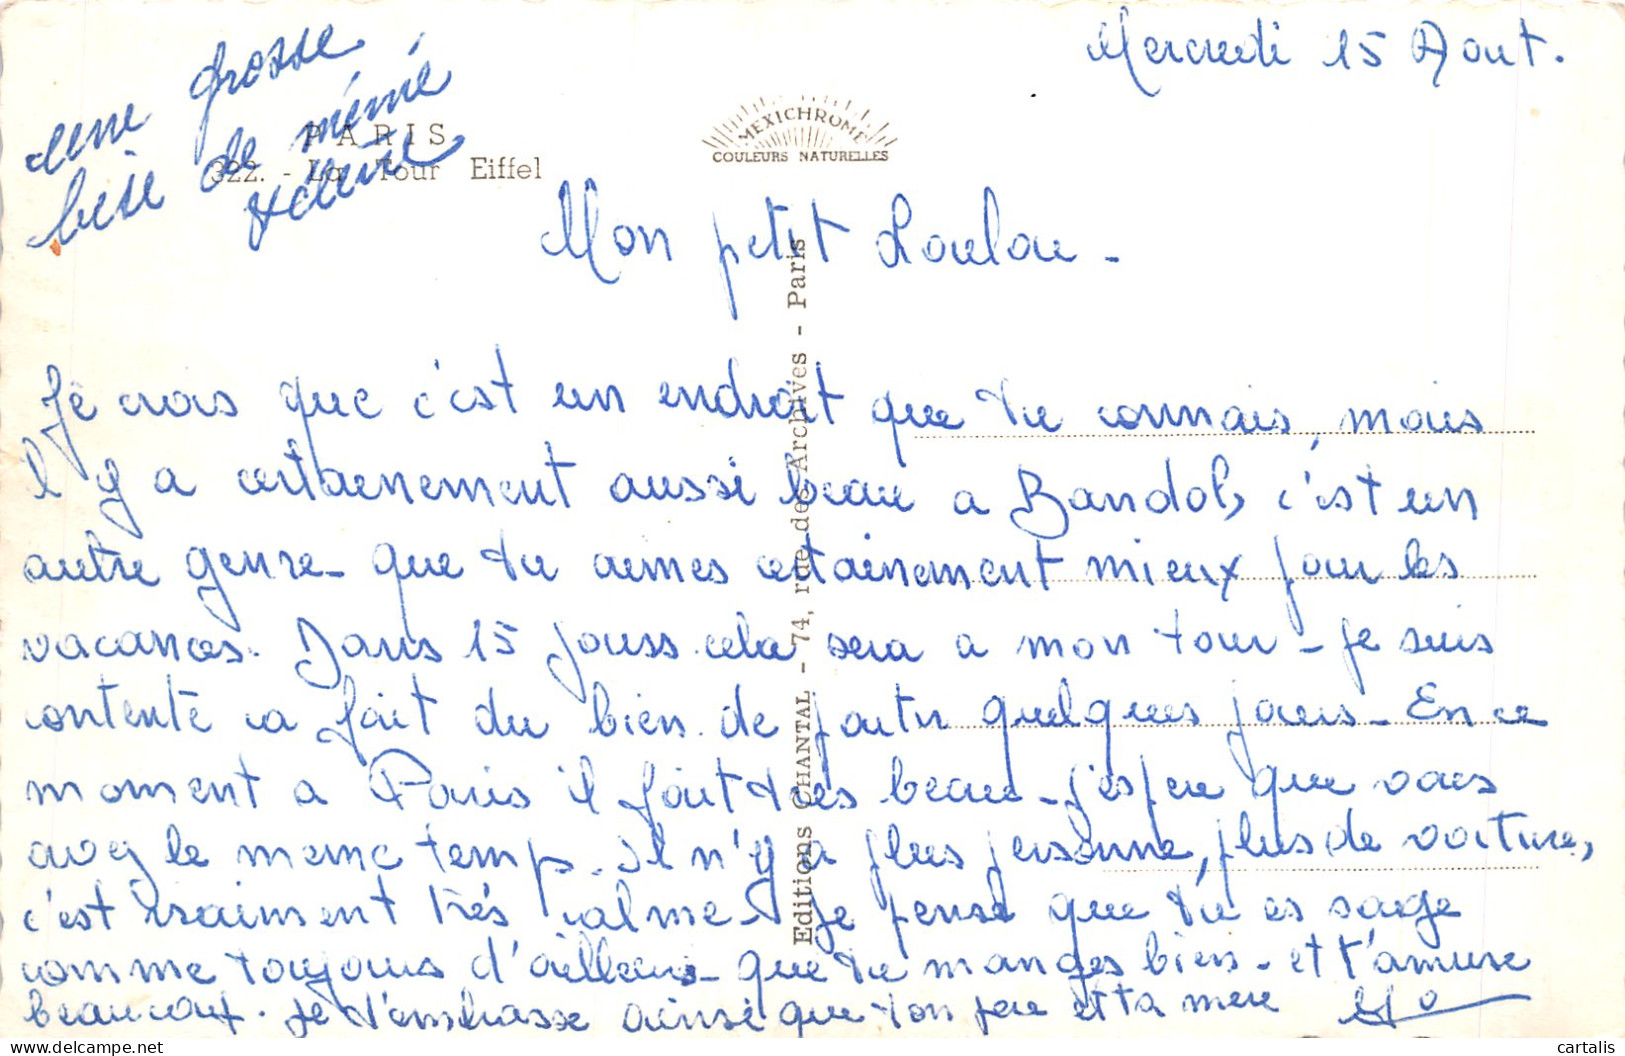 Mercredi 15 Aout.
une grosse
bise de mémé
PARIS
322. - La Tour Eiffel
MEXICHROME
COULEURS NATURELLES
Mon petit Loulou -
Je crois que c'est un endroit que tu connais, mais
il y a certainement aussi beau a Bandol, c'est un
autre genre - que tu aimes certainement mieux pour les
vacances. Dans 15 jours cela sera a mon tour - je suis
contente ca fait du bien de partir quelques jours - En ce
moment a Paris il fait tres beau - j'espere que vous
avez le meme temps. il n'y a plus personne, plus de voiture,
c'est vraiment très calme - Je pense que tu es sage
comme toujours d'ailleurs - que tu manges bien - et t'amuse
beaucoup. Je t'embrasse ainsi que ton pere et ta mere
Editions CHANTAL - 74, rue des Archives - Paris
cartalis